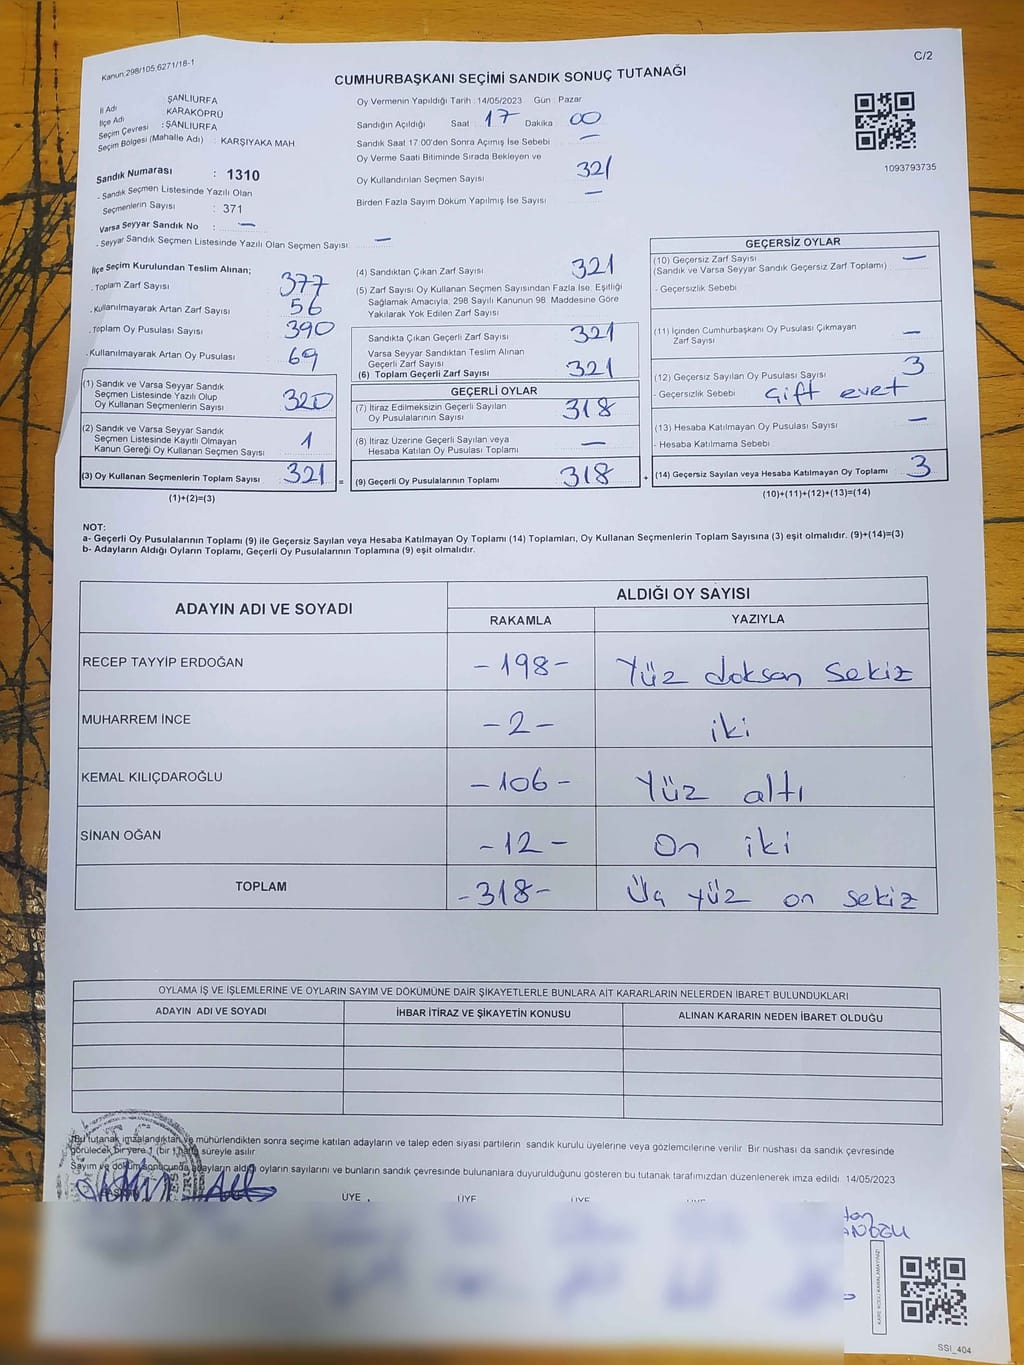 Kanun:298/105;6271/18-1
C/2
CUMHURBAŞKANI SEÇİMİ SANDIK SONUÇ TUTANAĞI
İl Adı : ŞANLIURFA
İlçe Adı : KARAKÖPRÜ
Seçim Çevresi : ŞANLIURFA
Seçim Bölgesi (Mahalle Adı) : KARŞIYAKA MAH
Sandık Numarası : 1310
- Sandık Seçmen Listesinde Yazılı Olan
Seçmenlerin Sayısı : 371
Varsa Seyyar Sandık No : —
- Seyyar Sandık Seçmen Listesinde Yazılı Olan Seçmen Sayısı: —
Oy Vermenin Yapıldığı Tarih : 14/05/2023 Gün : Pazar
Sandığın Açıldığı Saat : 17 Dakika : 00
Sandık Saat 17.00'den Sonra Açımış İse Sebebi —
Oy Verme Saati Bitiminde Sırada Bekleyen ve
Oy Kullandırılan Seçmen Sayısı 321
Birden Fazla Sayım Döküm Yapılmış İse Sayısı —
1093793735
İlçe Seçim Kurulundan Teslim Alınan;
- Toplam Zarf Sayısı 377
- Kullanılmayarak Artan Zarf Sayısı 56
- Toplam Oy Pusulası Sayısı 390
- Kullanılmayarak Artan Oy Pusulası 69
(1) Sandık ve Varsa Seyyar Sandık
Seçmen Listesinde Yazılı Olup
Oy Kullanan Seçmenlerin Sayısı 320
(2) Sandık ve Varsa Seyyar Sandık
Seçmen Listesinde Kayıtlı Olmayan
Kanun Gereği Oy Kullanan Seçmen Sayısı 1
(3) Oy Kullanan Seçmenlerin Toplam Sayısı 321 =
(1)+(2)=(3)
(4) Sandıktan Çıkan Zarf Sayısı 321
(5) Zarf Sayısı Oy Kullanan Seçmen Sayısından Fazla İse, Eşitliği
Sağlamak Amacıyla, 298 Sayılı Kanunun 98. Maddesine Göre
Yakılarak Yok Edilen Zarf Sayısı
Sandıkta Çıkan Geçerli Zarf Sayısı 321
Varsa Seyyar Sandıktan Teslim Alınan
Geçerli Zarf Sayısı
(6) Toplam Geçerli Zarf Sayısı 321
GEÇERLİ OYLAR
(7) İtiraz Edilmeksizin Geçerli Sayılan
Oy Pusulalarının Sayısı 318
(8) İtiraz Üzerine Geçerli Sayılan veya
Hesaba Katılan Oy Pusulası Toplamı —
(9) Geçerli Oy Pusulalarının Toplamı 318 +
GEÇERSİZ OYLAR
(10) Geçersiz Zarf Sayısı —
(Sandık ve Varsa Seyyar Sandık Geçersiz Zarf Toplamı)
- Geçersizlik Sebebi
(11) İçinden Cumhurbaşkanı Oy Pusulası Çıkmayan
Zarf Sayısı —
(12) Geçersiz Sayılan Oy Pusulası Sayısı 3
- Geçersizlik Sebebi Çift evet
(13) Hesaba Katılmayan Oy Pusulası Sayısı —
- Hesaba Katılmama Sebebi
(14) Geçersiz Sayılan veya Hesaba Katılmayan Oy Toplamı 3
(10)+(11)+(12)+(13)=(14)
NOT:
a- Geçerli Oy Pusulalarının Toplamı (9) ile Geçersiz Sayılan veya Hesaba Katılmayan Oy Toplamı (14) Toplamları, Oy Kullanan Seçmenlerin Toplam Sayısına (3) eşit olmalıdır. (9)+(14)=(3)
b- Adayların Aldığı Oyların Toplamı, Geçerli Oy Pusulalarının Toplamına (9) eşit olmalıdır.
ADAYIN ADI VE SOYADI ALDIĞI OY SAYISI
RAKAMLA YAZIYLA
RECEP TAYYİP ERDOĞAN -198- Yüz doksan sekiz
MUHARREM İNCE -2- iki
KEMAL KILIÇDAROĞLU -106- Yüz altı
SİNAN OĞAN -12- On iki
TOPLAM -318- Üç yüz on sekiz
OYLAMA İŞ VE İŞLEMLERİNE VE OYLARIN SAYIM VE DÖKÜMÜNE DAİR ŞİKAYETLERLE BUNLARA AİT KARARLARIN NELERDEN İBARET BULUNDUKLARI
ADAYIN ADI VE SOYADI İHBAR İTİRAZ VE ŞİKAYETİN KONUSU ALINAN KARARIN NEDEN İBARET OLDUĞU
Bu tutanak imzalandıktan ve mühürlendikten sonra seçime katılan adayların ve talep eden siyasi partilerin sandık kurulu üyelerine veya gözlemcilerine verilir. Bir nushası da sandık çevresinde
görülecek bir yere 1 (bir) hafta süreyle asılır.
Sayım ve döküm sonucunda adayların aldığı oyların sayılarını ve bunların sandık çevresinde bulunanlara duyurulduğunu gösteren bu tutanak tarafımızdan düzenlenerek imza edildi. 14/05/2023
BAŞKAN ÜYE ÜYE ÜYE
SSI_404